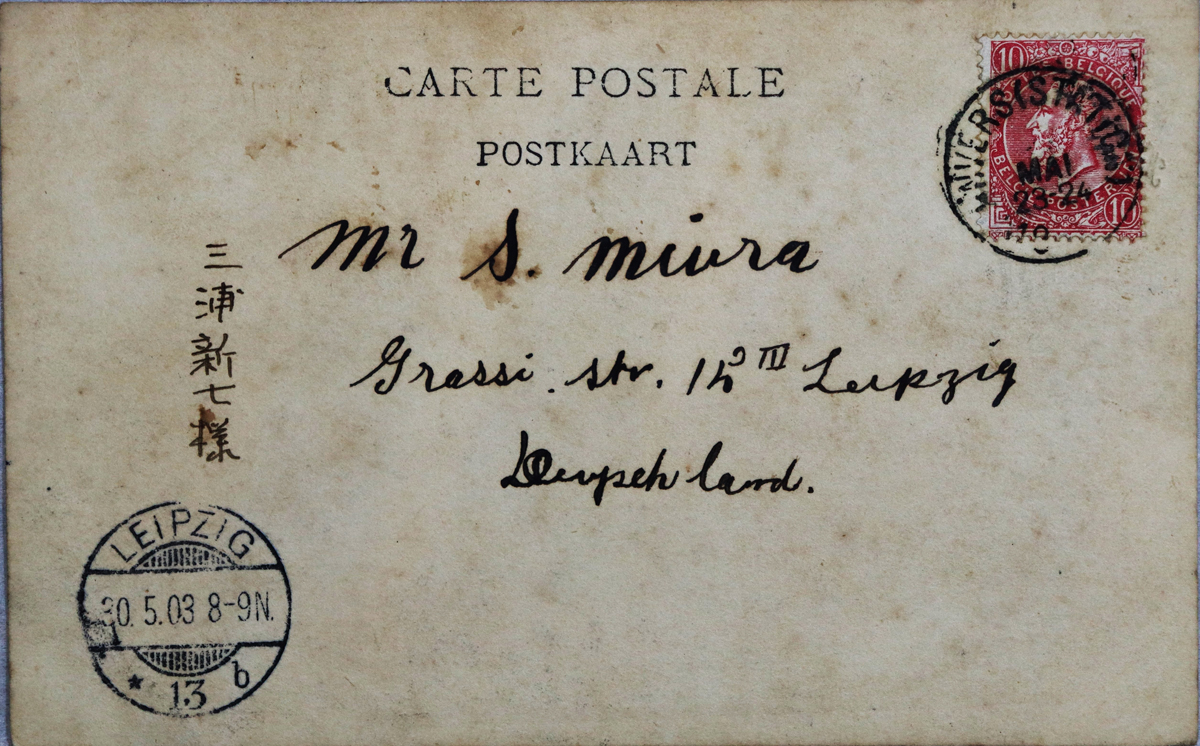 CARTE POSTALE
POSTKAART
Mr S. Miura
Grassi. str. III Leipzig
Deutschland.
三浦新七様
10 10
BELGIQUE
MAI
23-24
LEIPZIG
30.5.03 8-9N.
* 13 b